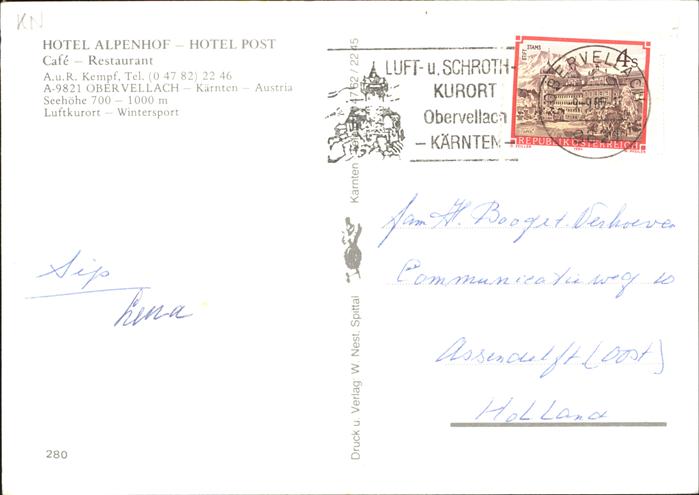 KN
HOTEL ALPENHOF – HOTEL POST
Café – Restaurant
A.u.R. Kempf, Tel. (0 47 82) 22 46
A-9821 OBERVELLACH – Kärnten – Austria
Seehöhe 700 – 1000 m
Luftkurort – Wintersport
LUFT- u. SCHROTH-
KURORT
Obervellach
– KÄRNTEN –
STIFT STAMS
4 S
REPUBLIK ÖSTERREICH
OBERVELLACH
Druck u. Verlag: W. Nest, Spittal
Kärnten
22 45
fam H. Booget. Verhoeven
Communicatieweg 10
Assendelft (Oost)
Holland
Sip
Lena
280